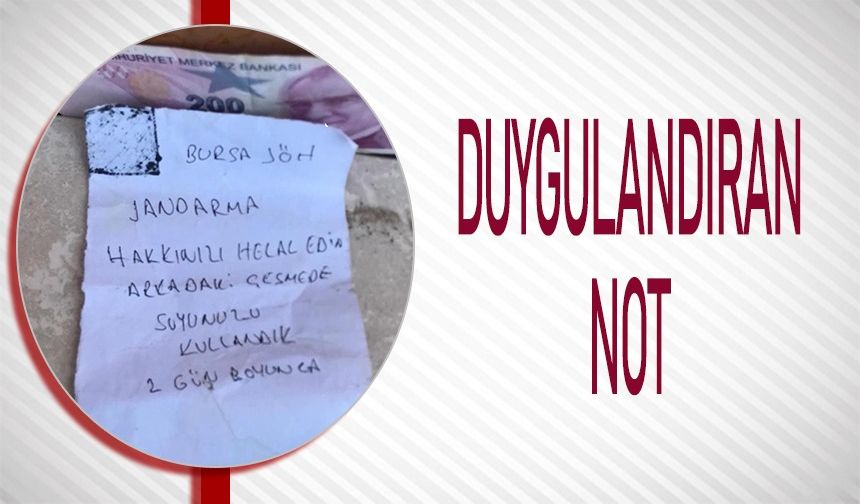 MHURİYET MERKEZ BANKASI
200
BURSA JÖH
JANDARMA
HAKKINIZI HELAL EDİN
ARKADAKİ ÇEŞMEDE
SUYUNUZU
KULLANDIK
2 GÜN BOYUNCA
DUYGULANDIRAN
NOT